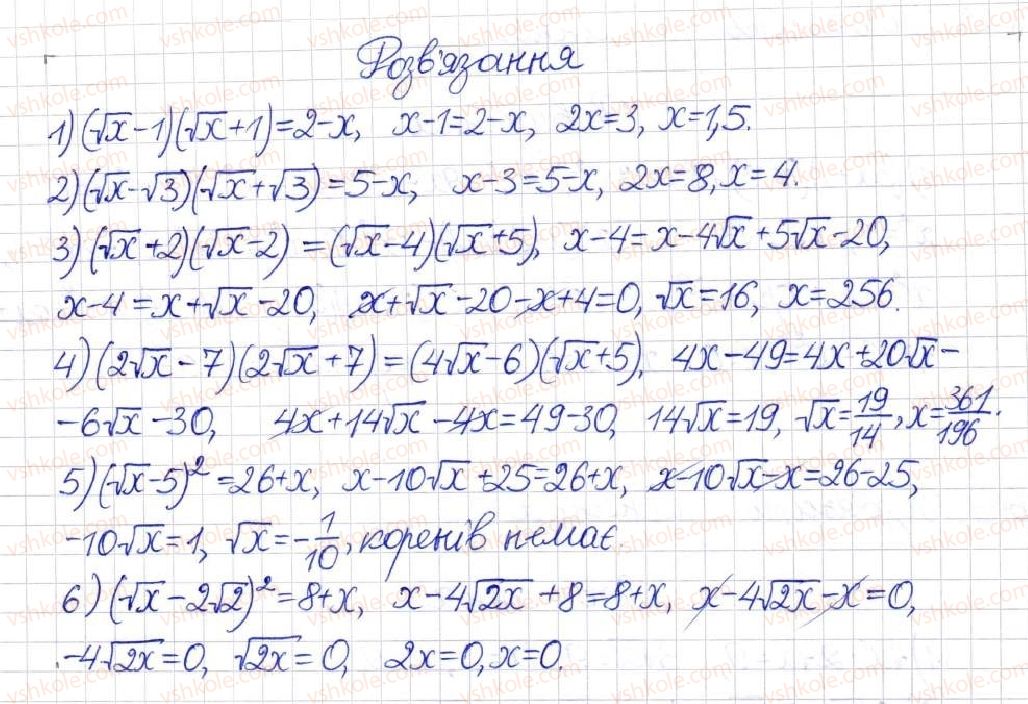 Розв'язання
1) (√x-1)(√x+1)=2-x, x-1=2-x, 2x=3, x=1,5.
2) (√x-√3)(√x+√3)=5-x, x-3=5-x, 2x=8, x=4.
3) (√x+2)(√x-2) = (√x-4)(√x+5), x-4=x-4√x+5√x-20,
x-4=x+√x-20, x+√x-20-x+4=0, √x=16, x=256.
4) (2√x-7)(2√x+7)=(4√x-6)(√x+5), 4x-49=4x+20√x-
-6√x-30, 4x+14√x-4x=49-30, 14√x=19, √x=19/14, x=361/196.
5) (√x-5)²=26+x, x-10√x+25=26+x, x-10√x-x=26-25,
-10√x=1, √x=-1/10, коренів немає.
6) (√x-2√2)²=8+x, x-4√2x+8=8+x, x-4√2x-x=0,
-4√2x=0, √2x=0, 2x=0, x=0.